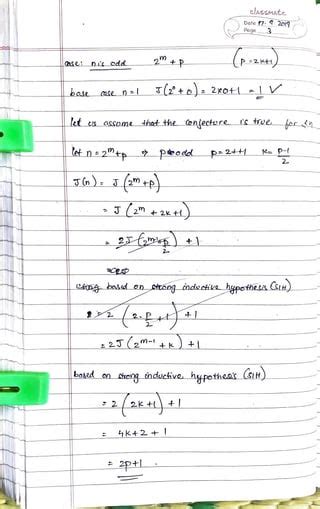 classmate
Date 17.9.2019
Page 3
case: n is odd 2^m + p (p = 2k+1)
base case n=1 J(2^0 + 0) = 2×0+1 = 1 ✓
let us assume that the conjecture is true for
let n = 2^m+p ⇒ p odd p = 2k+1 k = (p-1)/2
J(n) = J(2^m+p)
= J(2^m + 2k+1)
= 2J((2^m+p)/2) + 1
based on strong inductive hypothesis (SIH)
= 2(2·p/2 + 1) + 1
= 2J(2^(m-1) + k) + 1
based on strong inductive hypothesis (SIH)
= 2(2k+1) + 1
= 4k+2 + 1
= 2p+1 .